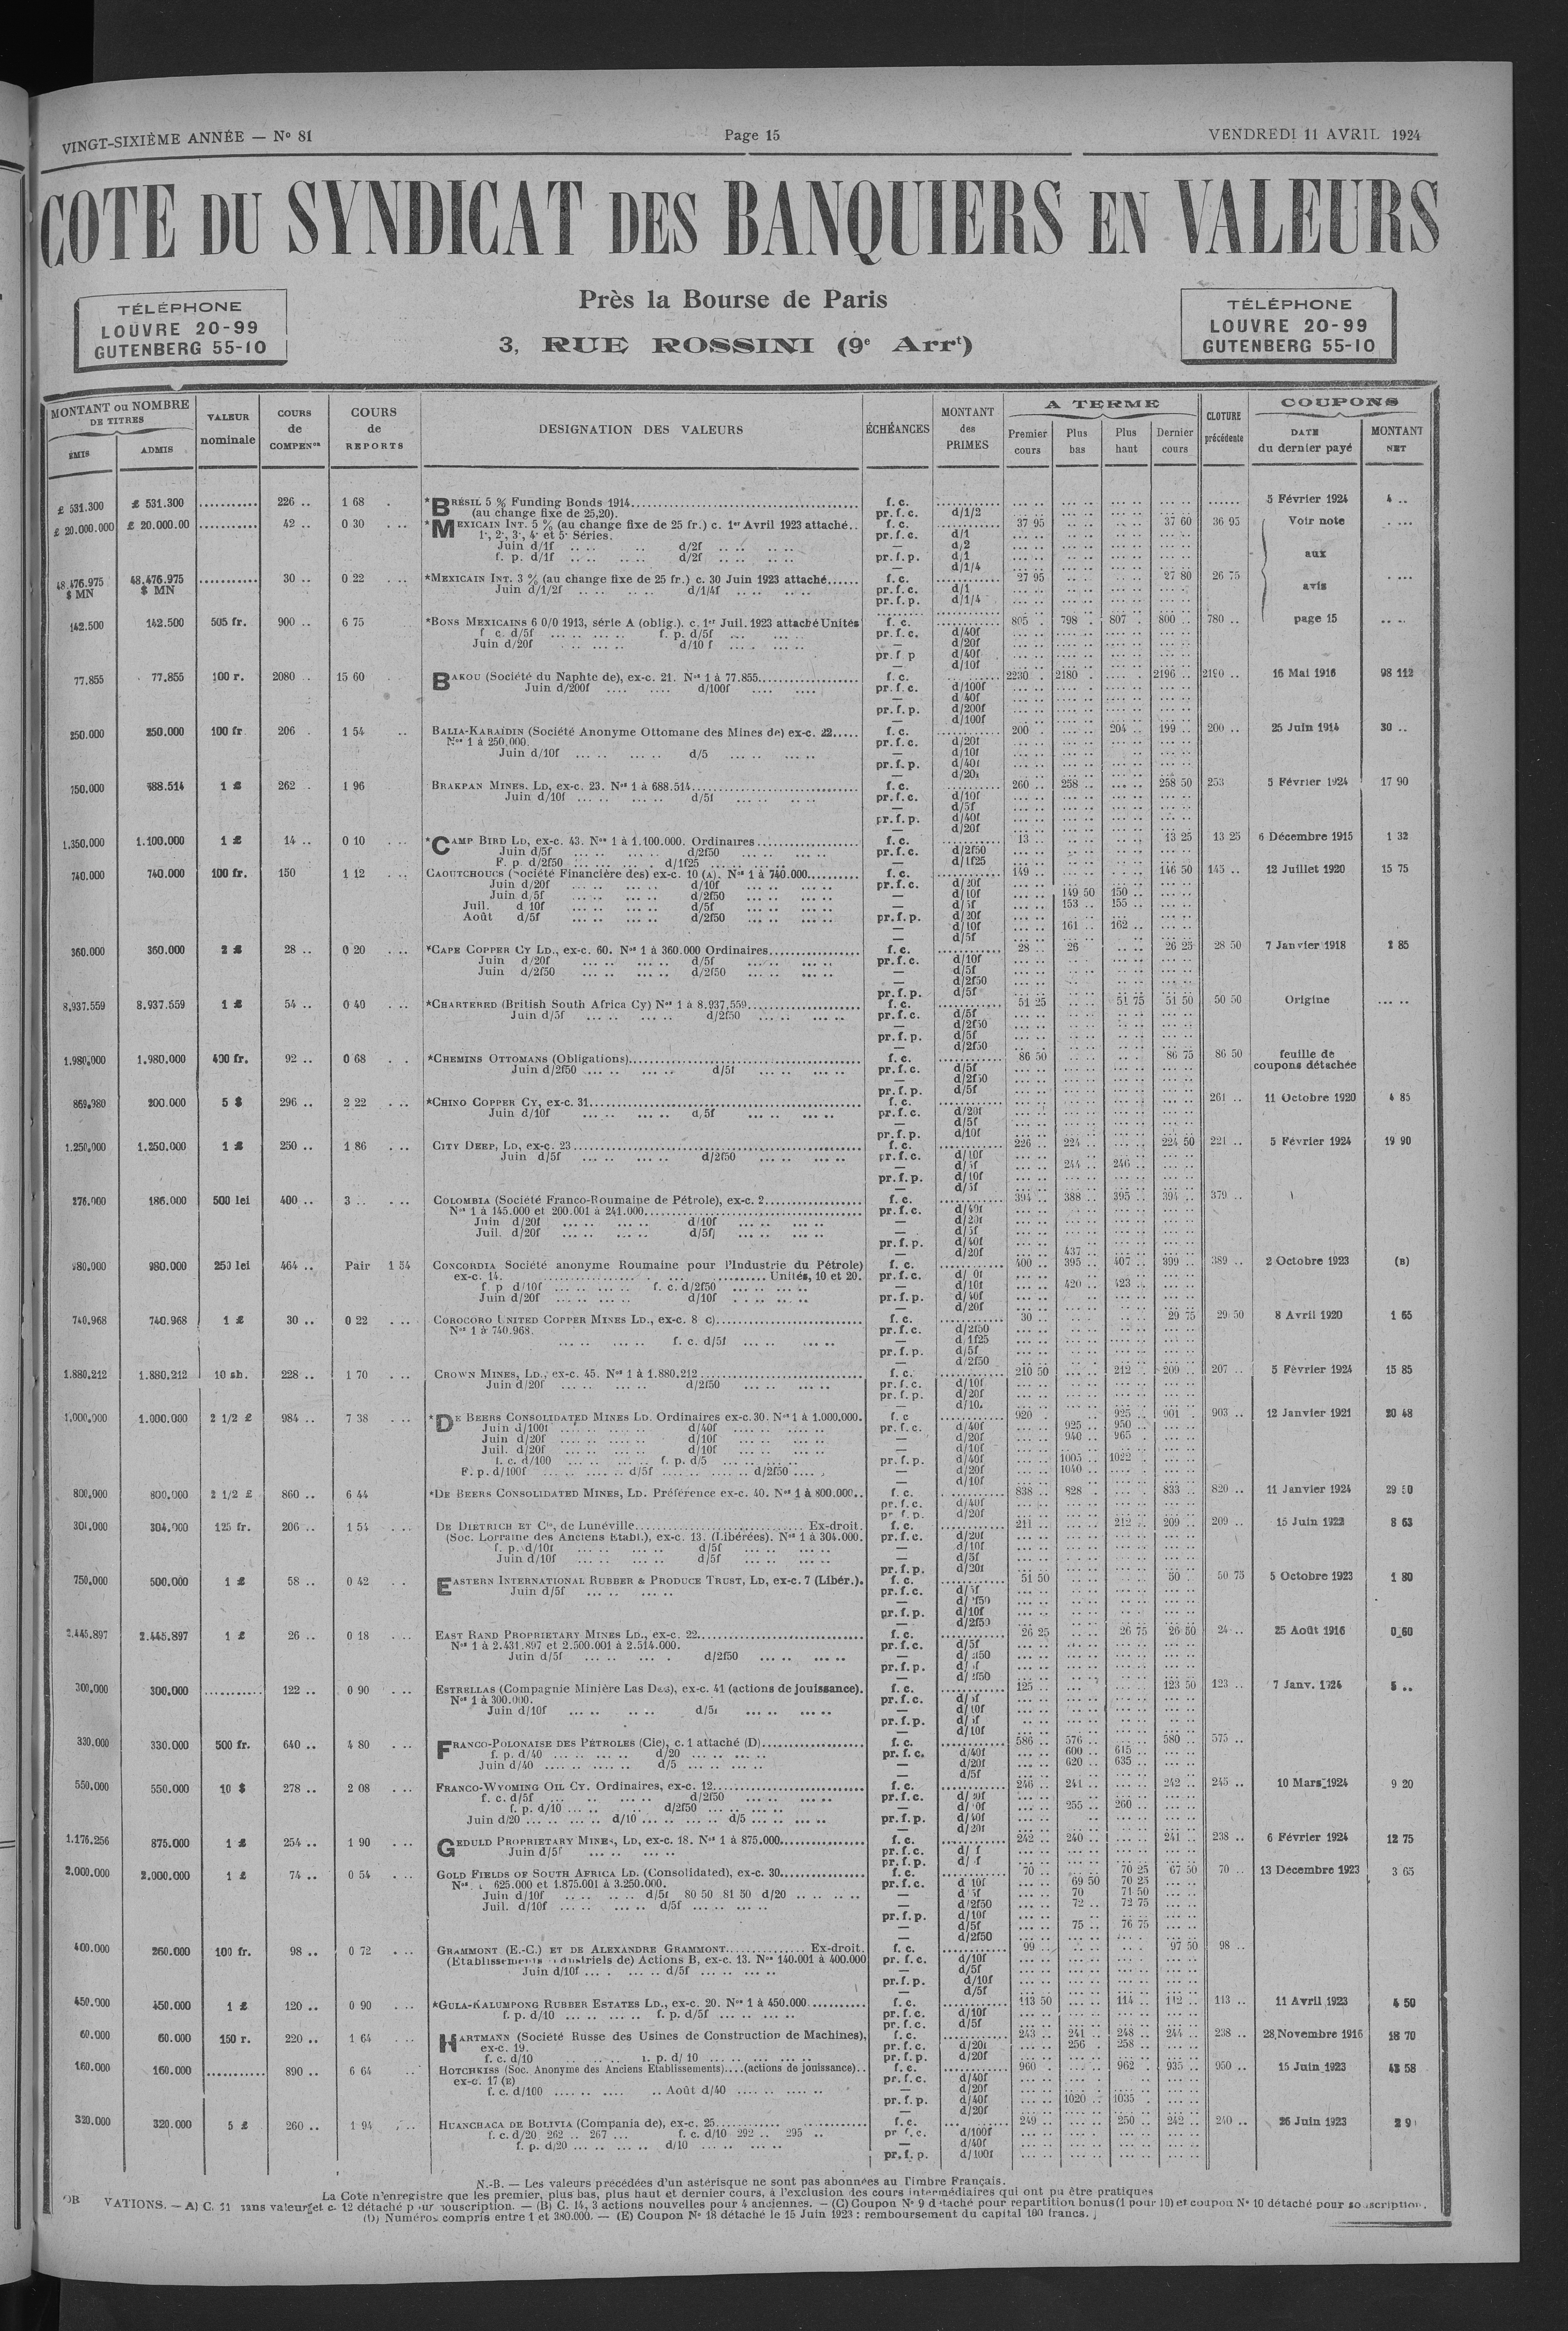 VINGT-SIXIÈME ANNÉE — N° 81
Page 15
VENDREDI 11 AVRIL 1924
COTE DU SYNDICAT DES BANQUIERS EN VALEURS
TÉLÉPHONE
LOUVRE 20-99
GUTENBERG 55-10
Près la Bourse de Paris
3, RUE ROSSINI (9e Arrt)
TÉLÉPHONE
LOUVRE 20-99
GUTENBERG 55-10
MONTANT ou NOMBRE DE TITRES
ÉMIS
ADMIS
VALEUR nominale
COURS de COMPENon
COURS de REPORTS
DESIGNATION DES VALEURS
ÉCHÉANCES
MONTANT des PRIMES
A TERME
Premier cours
Plus bas
Plus haut
Dernier cours
CLOTURE précédente
COUPONS
DATE du dernier payé
MONTANT NET
£ 531.300 £ 531.300 .......... 226 .. 1 68 *BRÉSIL 5 % Funding Bonds 1914 f. c. 5 Février 1924 4 ..
(au change fixe de 25,20). pr. f. c. d/1/2
£ 20.000.000 £ 20.000.00 .......... 42 .. 0 30 *MEXICAIN INT. 5 % (au change fixe de 25 fr.) c. 1er Avril 1923 attaché.. f. c. 37 95 37 60 36 95 Voir note
1e, 2e, 3e, 4e et 5e Séries. pr. f. c. d/1
Juin d/1f d/2f — d/2
f. p. d/1f d/2f pr. f. p. d/1 aux
— d/1/4
48.476.975 $ MN 48.476.975 $ MN .......... 30 .. 0 22 *MEXICAIN INT. 3 % (au change fixe de 25 fr.) c. 30 Juin 1923 attaché...... f. c. 27 95 27 80 26 75 avis
Juin d/1/2f d/1/4f pr. f. c. d/1
pr. f. p. d/1/4
142.500 142.500 505 fr. 900 .. 6 75 *BONS MEXICAINS 6 0/0 1913, série A (oblig.). c. 1er Juil. 1923 attaché Unités f. c. 805 .. 798 .. 807 .. 800 .. 780 .. page 15
f c. d/5f f. p. d/5f pr. f. c. d/40f
Juin d/20f d/10 f — d/20f
pr. f. p d/40f
— d/10f
77.855 77.855 100 r. 2080 .. 15 60 BAKOU (Société du Naphte de), ex-c. 21. Nos 1 à 77.855 f. c. 2230 .. 2180 .. 2196 .. 2190 .. 16 Mai 1916 98 112
Juin d/200f d/100f pr. f. c. d/100f
— d/40f
pr. f. p. d/200f
— d/100f
250.000 250.000 100 fr 206 . 1 54 BALIA-KARAÏDIN (Société Anonyme Ottomane des Mines de) ex-c. 22..... f. c. 200 .. 204 .. 199 .. 200 .. 25 Juin 1914 30 ..
Nos 1 à 250.000. pr. f. c. d/20f
Juin d/10f d/5 — d/10f
pr. f. p. d/40f
— d/20f
750.000 688.514 1 £ 262 . 1 96 BRAKPAN MINES. LD, ex-c. 23. Nos 1 à 688.514 f. c. 260 .. 258 .. 258 50 253 5 Février 1924 17 90
Juin d/10f d/5f pr. f. c. d/10f
— d/5f
pr. f. p. d/40f
— d/20f
1.350.000 1.100.000 1 £ 14 .. 0 10 *CAMP BIRD LD, ex-c. 43. Nos 1 à 1.100.000. Ordinaires f. c. 13 .. 13 25 13 25 6 Décembre 1915 1 32
Juin d/5f d/2f50 pr. f. c. d/2f50
F. p. d/2f50 d/1f25 — d/1f25
740.000 740.000 100 fr. 150 1 12 CAOUTCHOUCS (Société Financière des) ex-c. 10 (A). Nos 1 à 740.000 f. c. 149 .. 146 50 145 .. 12 Juillet 1920 15 75
Juin d/20f d/10f pr. f. c. d/20f
Juin d/5f d/2f50 — d/10f 149 50 150 ..
Juil. d 10f d/5f — d/5f 153 .. 155 ..
Août d/5f d/2f50 pr. f. p. d/20f
— d/10f 161 .. 162 ..
— d/5f
360.000 360.000 2 £ 28 .. 0 20 *CAPE COPPER CY LD., ex-c. 60. Nos 1 à 360.000 Ordinaires f. c. 28 .. 26 26 25 28 50 7 Janvier 1918 2 85
Juin d/20f d/5f pr. f. c. d/10f
Juin d/2f50 d/2f50 — d/5f
— d/2f50
pr. f. p. d/5f
8.937.559 8.937.559 1 £ 54 .. 0 40 *CHARTERED (British South Africa Cy) Nos 1 à 8.937.559 f. c. 51 25 51 75 51 50 50 50 Origine
Juin d/5f d/2f50 pr. f. c. d/5f
— d/2f50
pr. f. p. d/5f
— d/2f50
1.980.000 1.980.000 400 fr. 92 .. 0 68 *CHEMINS OTTOMANS (Obligations) f. c. 86 50 86 75 86 50 feuille de coupons détachée
Juin d/2f50 d/5f pr. f. c. d/5f
— d/2f50
pr. f. p. d/5f
869.980 200.000 5 $ 296 .. 2 22 *CHINO COPPER CY, ex-c. 31 f. c. 261 .. 11 Octobre 1920 4 85
Juin d/10f d/5f pr. f. c. d/20f
— d/5f
pr. f. p. d/10f
1.250.000 1.250.000 1 £ 250 .. 1 86 CITY DEEP, LD, ex-c. 23 f. c. 226 .. 224 .. 224 50 221 .. 5 Février 1924 19 90
Juin d/5f d/2f50 pr. f. c. d/10f
— d/5f 244 .. 246 ..
pr. f. p. d/10f
— d/5f
276.000 186.000 500 lei 400 .. 3 .. COLOMBIA (Société Franco-Roumaine de Pétrole), ex-c. 2 f. c. 394 .. 388 .. 395 .. 394 .. 379 ..
Nos 1 à 145.000 et 200.001 à 241.000 pr. f. c. d/40f
Juin d/20f d/10f — d/20f
Juil. d/20f d/5f — d/5f
pr. f. p. d/40f
— d/20f 437 ..
980.000 980.000 250 lei 464 .. Pair 1 54 CONCORDIA Société anonyme Roumaine pour l'Industrie du Pétrole) f. c. 400 .. 395 .. 407 .. 399 .. 389 .. 2 Octobre 1923 (B)
ex-c. 14. Unités, 10 et 20. pr. f. c.
f. p d/10f f. c. d/2f50 — d/10f 420 .. 423 ..
Juin d/20f d/10f pr. f. p. d/40f
— d/20f
740.968 740.968 1 £ 30 .. 0 22 COROCORO UNITED COPPER MINES LD., ex-c. 8 c) f. c. 30 .. 29 75 29 50 8 Avril 1920 1 65
Nos 1 à 740.968. pr. f. c. d/2f50
f. c. d/5f — d/1f25
pr. f. p. d/5f
— d/2f50
1.880.212 1.880.212 10 sh. 228 .. 1 70 CROWN MINES, LD., ex-c. 45. Nos 1 à 1.880.212 f. c. 210 50 212 . 209 .. 207 .. 5 Février 1924 15 85
Juin d/20f d/2f50 pr. f. c. d/10f
pr. f. p. d/20f
— d/10f
1.000.000 1.000.000 2 1/2 £ 984 .. 7 38 *DE BEERS CONSOLIDATED MINES LD. Ordinaires ex-c. 30. Nos 1 à 1.000.000. f. c 920 . 925 .. 901 . 903 .. 12 Janvier 1921 20 48
Juin d/100f d/40f pr. f. c. d/40f 925 .. 950 ..
Juin d/20f d/10f — d/20f 940 .. 965 ..
Juil. d/20f d/10f — d/10f
f. c. d/100 f. p. d/5 pr. f. p. d/40f 1005 .. 1022 .
F. p. d/100f d/5f d/2f50 — d/20f 1040 ..
— d/10f
800.000 800.000 2 1/2 £ 860 .. 6 44 *DE BEERS CONSOLIDATED MINES, LD. Préférence ex-c. 40. Nos 1 à 800.000.. f. c. 838 .. 828 . 833 .. 820 .. 11 Janvier 1924 29 50
pr. f. c. d/40f
pr. f. p. d/20f
304.000 304.000 125 fr. 206 .. 1 54 DE DIETRICH ET Cie, de Lunéville Ex-droit. f. c. 211 .. 212 .. 209 .. 209 .. 15 Juin 1922 8 63
(Soc. Lorraine des Anciens Etabl.), ex-c. 13. (Libérées). Nos 1 à 304.000. pr. f. c. d/20f
f. p. d/10f d/5f — d/10f
Juin d/10f d/5f — d/5f
pr. f. p. d/20f
750.000 500.000 1 £ 58 .. 0 42 EASTERN INTERNATIONAL RUBBER & PRODUCE TRUST, LD, ex-c. 7 (Libér.). f. c. 51 50 50 .. 50 75 5 Octobre 1923 1 80
Juin d/5f pr. f. c. d/5f
— d/2f50
pr. f. p. d/10f
— d/2f50
2.445.897 2.445.897 1 £ 26 .. 0 18 EAST RAND PROPRIETARY MINES LD., ex-c. 22 f. c. 26 25 26 75 26 50 24 .. 25 Août 1916 0 60
Nos 1 à 2.431.897 et 2.500.001 à 2.514.000. pr. f. c. d/5f
Juin d/5f d/2f50 — d/2f50
pr. f. p.
— d/2f50
300.000 300.000 .......... 122 .. 0 90 ESTRELLAS (Compagnie Minière Las Dos), ex-c. 41 (actions de jouissance). f. c. 125 .. 123 50 123 .. 7 Janv. 1924 5 ..
Nos 1 à 300.000. pr. f. c. d/5f
Juin d/10f d/5f — d/10f
pr. f. p. d/5f
— d/10f
330.000 330.000 500 fr. 640 .. 4 80 FRANCO-POLONAISE DES PÉTROLES (Cie), c. 1 attaché (D) f. c. 586 .. 576 .. 580 .. 575 ..
f. p. d/40 d/20 pr. f. c. d/40f 600 .. 615 ..
Juin d/40 d/5 — d/20f 620 .. 635 ..
— d/5f
550.000 550.000 10 $ 278 .. 2 08 FRANCO-WYOMING OIL CY. Ordinaires, ex-c. 12 f. c. 246 .. 241 .. 242 .. 245 .. 10 Mars 1924 9 20
f. c. d/5f d/2f50 pr. f. c. d/20f
f. p. d/10 d/2f50 — 255 .. 260 ..
Juin d/20 d/10 d/5 pr. f. p. d/40f
— d/20f
1.176.256 875.000 1 £ 254 .. 1 90 GEDULD PROPRIETARY MINES, LD, ex-c. 18. Nos 1 à 875.000 f. c. 242 .. 240 .. 241 .. 238 .. 6 Février 1924 12 75
Juin d/5f pr. f. c.
pr. f. p.
2.000.000 2.000.000 1 £ 74 .. 0 54 GOLD FIELDS OF SOUTH AFRICA LD. (Consolidated), ex-c. 30 f. c. 70 .. 70 25 67 50 70 .. 13 Décembre 1923 3 65
625.000 et 1.875.001 à 3.250.000. pr. f. c. d 10f 69 50 70 25
Juin d/10f d/5f 80 50 81 50 d/20 — d/5f 70 71 50
Juil. d/10f d/5f — d/2f50 72 .. 72 75
pr. f. p. d/10f
— d/5f 75 .. 76 75
— d/2f50
400.000 260.000 100 fr. 98 .. 0 72 GRAMMONT (E.-C.) ET DE ALEXANDRE GRAMMONT Ex-droit. f. c. 99 .. 97 50 98 ..
(Etablissements Industriels de) Actions B, ex-c. 13. Nos 140.001 à 400.000 pr. f. c. d/10f
Juin d/10f d/5f — d/5f
pr. f. p. d/10f
— d/5f
450.000 450.000 1 £ 120 .. 0 90 *GULA-KALUMPONG RUBBER ESTATES LD., ex-c. 20. Nos 1 à 450.000 f. c. 113 50 114 .. 112 .. 113 .. 11 Avril 1923 4 50
f. p. d/10 f. p. d/5f pr. f. c. d/10f
pr. f. c. d/5f
60.000 60.000 150 r. 220 .. 1 64 HARTMANN (Société Russe des Usines de Construction de Machines), f. c. 243 .. 241 .. 248 .. 244 .. 238 .. 28 Novembre 1916 18 70
ex-c. 19. pr. f. c. d/20f 256 . 258 ..
f. c. d/10 p. d/ 10 pr. f. p. d/20f
160.000 160.000 .......... 890 .. 6 64 HOTCHKISS (Soc. Anonyme des Anciens Etablissements)....(actions de jouissance).. f. c. 960 . 962 . 935 .. 950 .. 15 Juin 1923 43 58
ex-c. 17 (E) pr. f. c. d/40f
f. c. d/100 Août d/40 — d/20f
pr. f. p. d/40f 1020 .. 1035 .
— d/20f
320.000 320.000 5 £ 260 .. 1 94 HUANCHACA DE BOLIVIA (Compania de), ex-c. 25 f. c. 249 .. 250 .. 242 .. 240 .. 26 Juin 1923
f. c. d/20 262 .. 267 ... f. c. d/10 292 .. 295 .. pr f. c. d/100f
f. p. d/20 d/10 — d/40f
pr. f. p. d/100f
N.-B. — Les valeurs précédées d'un astérisque ne sont pas abonnées au Timbre Français.
La Cote n'enregistre que les premier, plus bas, plus haut et dernier cours, à l'exclusion des cours intermédiaires qui ont pu être pratiqués
VATIONS. — A) C. 11 sans valeur et c. 12 détaché pour souscription. — (B) C. 14, 3 actions nouvelles pour 4 anciennes. — (C) Coupon N° 9 détaché pour repartition bonus (1 pour 10) et coupon N° 10 détaché pour souscription.
(D) Numéros compris entre 1 et 380.000. — (E) Coupon N° 18 détaché le 15 Juin 1923 : remboursement du capital 100 francs.